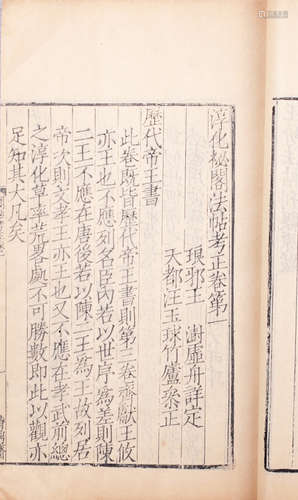 淳化秘閣法帖考正卷第一
琅邪王澍虛舟詳定
天都汪玉球竹廬參正
歷代帝王書
此卷既皆歷代帝王書則第二卷齊獻王攸
亦王也不應在唐後若以陳二王為王故列居
帝次則文孝王亦王也又不應在孝武前總
之淳化草率荒晷處不可勝數即此以觀亦
足知其大凡矣